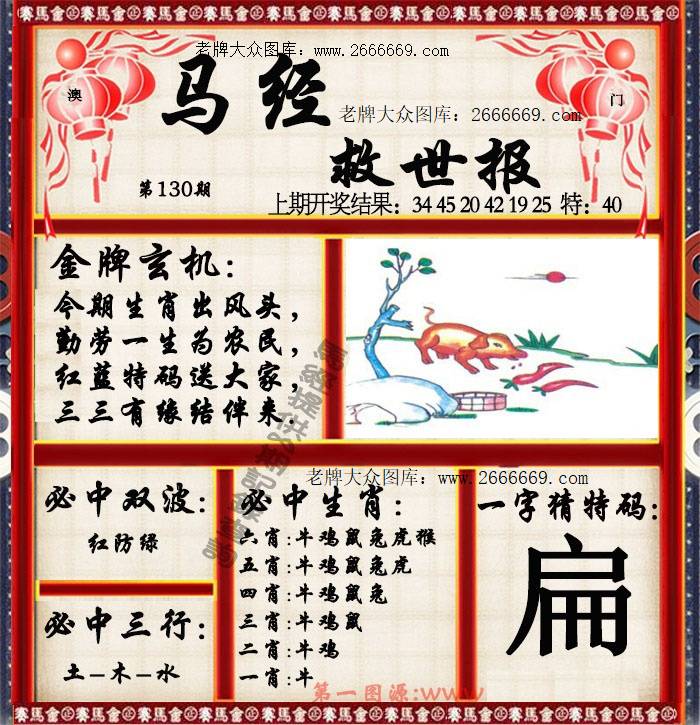 老牌大众图库：www.2666669.com
澳
门
马经
老牌大众图库：2666669.com
救世报
第130期
上期开奖结果：34 45 20 42 19 25 特：40
金牌玄机：
今期生肖出风头，
勤劳一生为农民，
红蓝特码送大家，
三三有缘结伴来.
老牌大众图库：www.2666669.com
必中双波：
红防绿
必中三行：
土－木－水
必中生肖：
六肖：牛鸡鼠兔虎猴
五肖：牛鸡鼠兔虎
四肖：牛鸡鼠兔
三肖：牛鸡鼠
二肖：牛鸡
一肖：牛
一字猜特码：
扁
第一图源:www